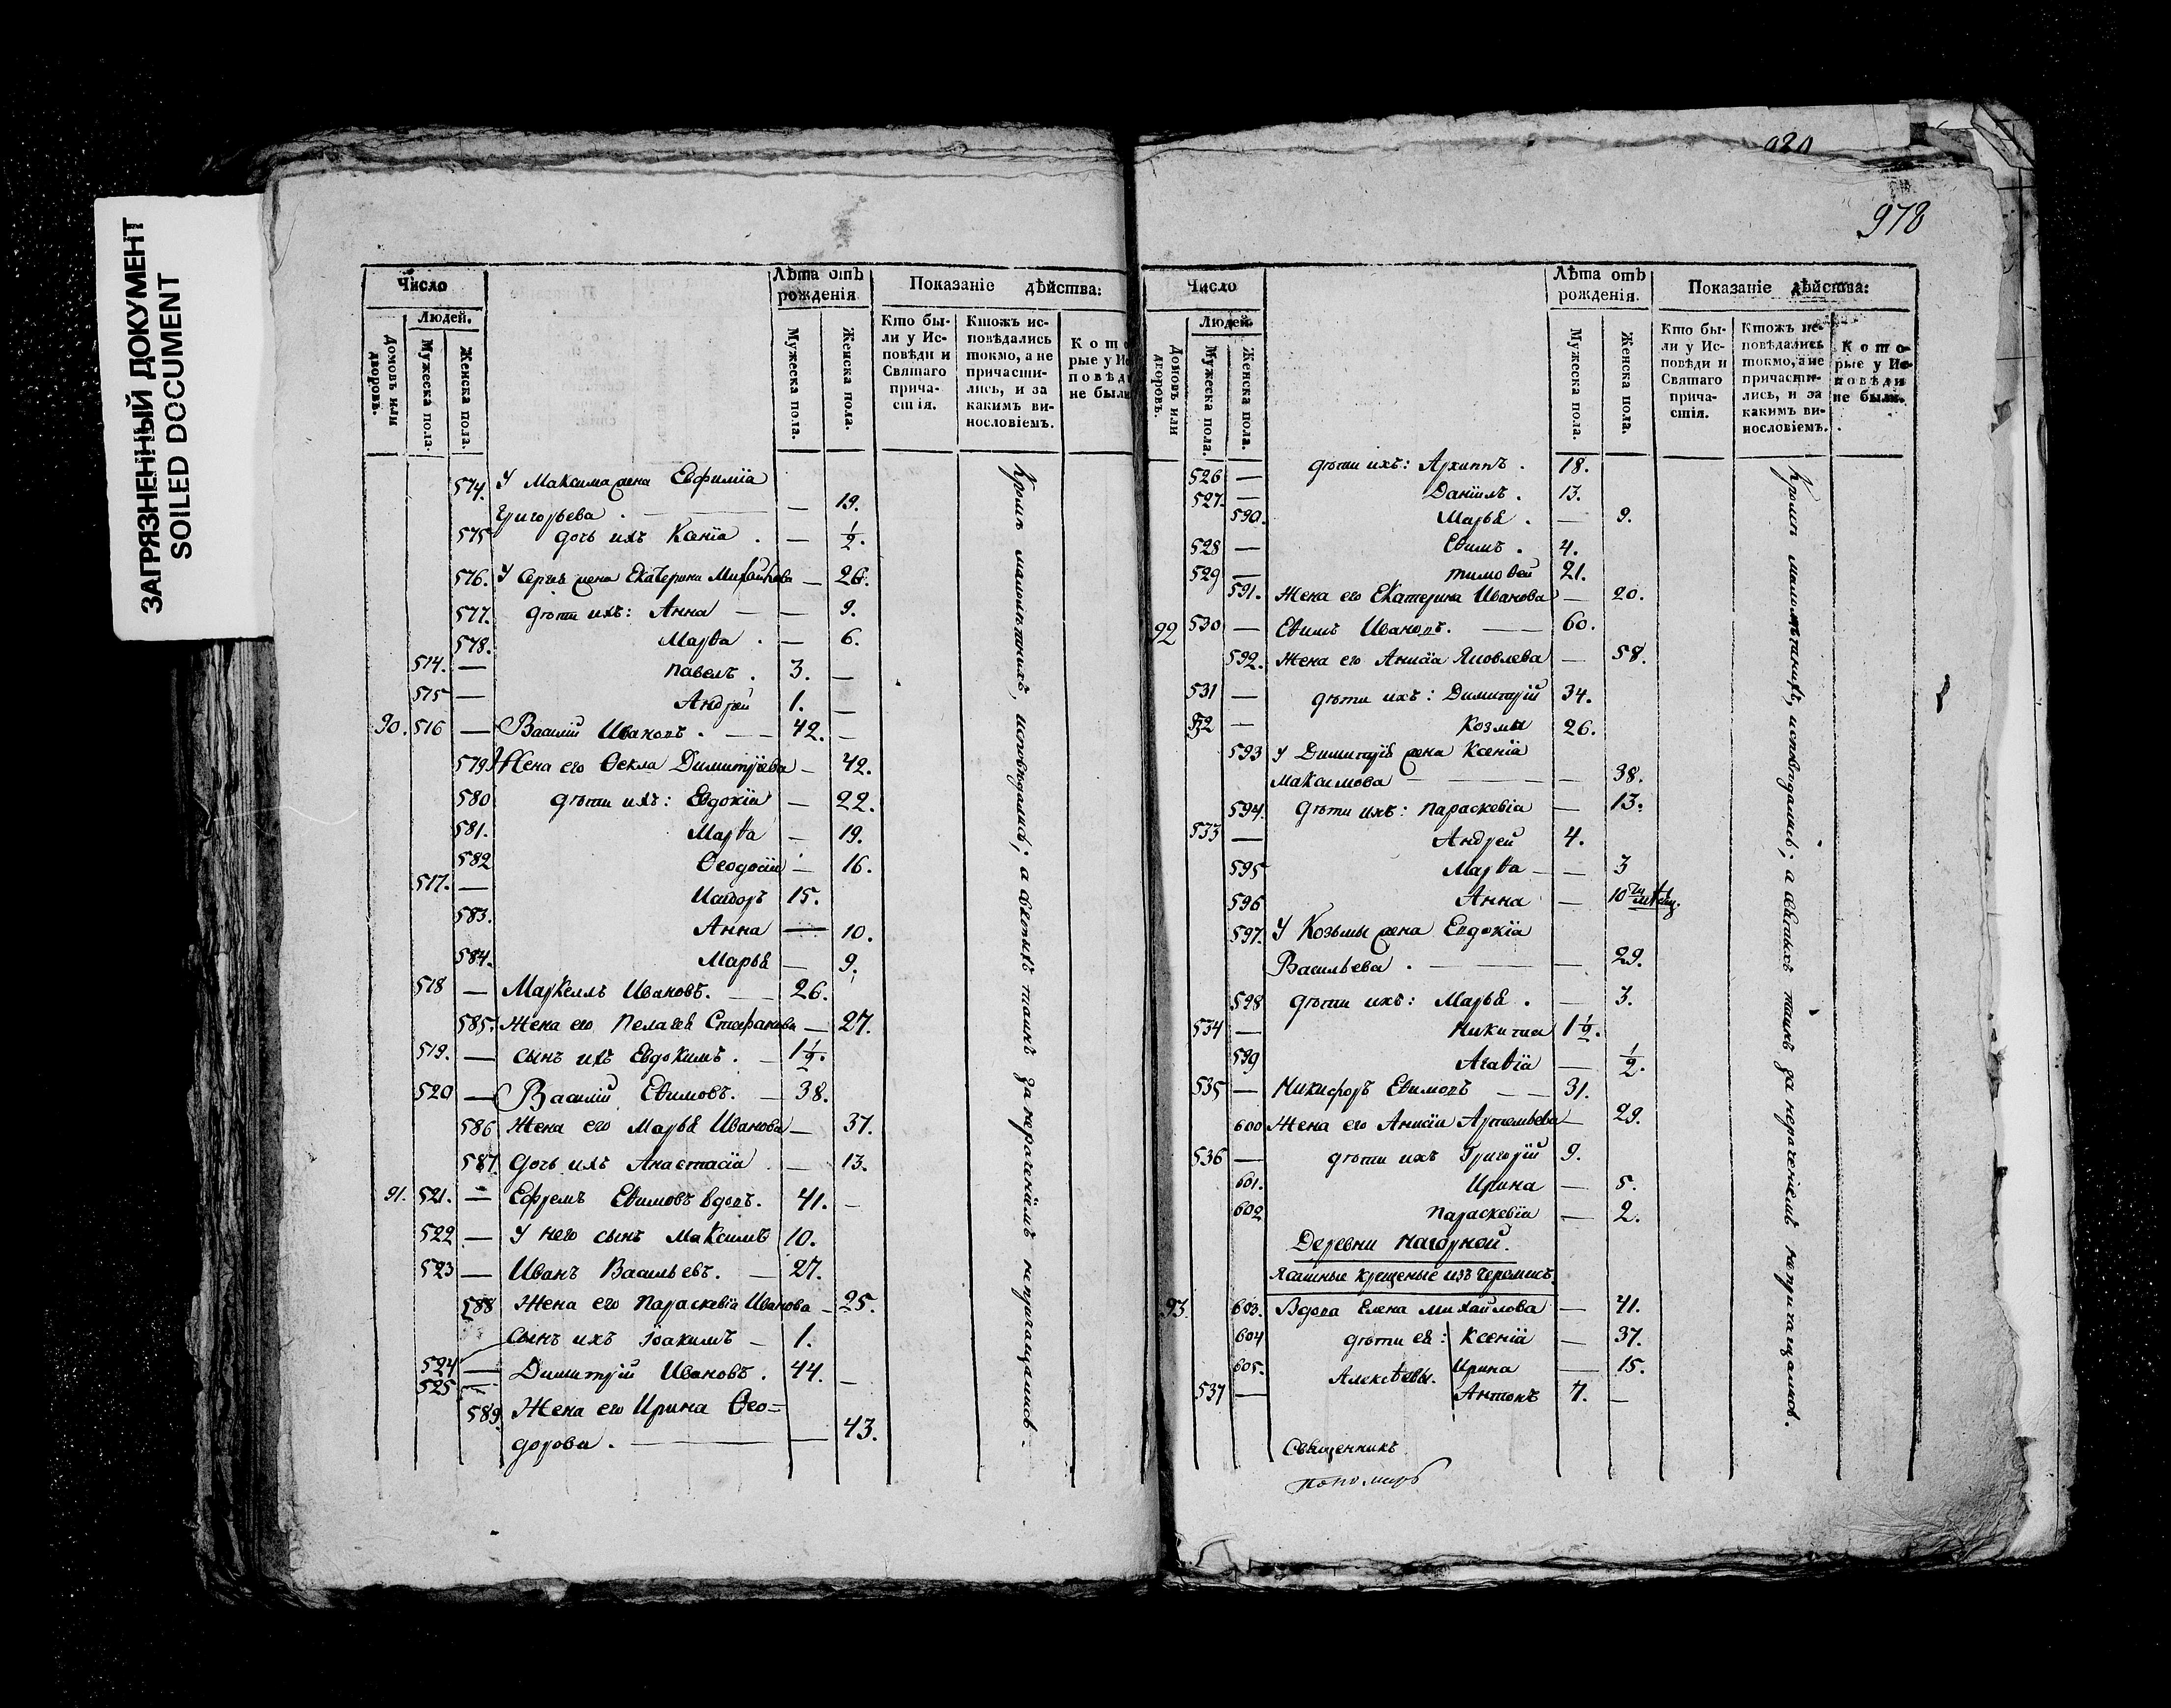 ЗАГРЯЗНЕННЫЙ ДОКУМЕНТ
SOILED DOCUMENT
Число
Людей.
Домовъ или дворовъ.
Мужеска пола.
Женска пола.
Лѣта отъ рожденія
Мужеска пола.
Женска пола.
Показаніе дѣйства:
Кто бы-
ли у Ис-
повѣди и
Святаго
прича-
стія.
Ктожъ ис-
повѣдались
токмо, а не
причасти-
лись, и за
какимъ ви-
нословіемъ.
К о т о
рые у Ис
п о в ѣ д
не были
574. У Максима жена Евфимїа
Григорьева . — — 19.
575 дочь ихъ Ксенїа . — ½.
576. У Сергѣя жена Екатерина Михайлова — 26.
577. дѣти ихъ: Анна — — 9.
578. Марѳа . — 6.
514. — Павелъ . 3. —
515 — Андрей 1. —
90. 516 — Василїй Ивановъ . — 42. —
579 Жена его Ѳекла Димитрїева — 42.
580 дѣти ихъ: Евдокїа — 22.
581. Марѳа — 19.
582 Ѳеодосїа — 16.
517. — Исидоръ 15.
583. Анна — 10.
584. Марья — 9.
518 — Маркеллъ Ивановъ. — 26.
585. Жена его Пелагея Стефанова — 27.
519. — сынъ ихъ Евдокимъ . — 1½.
520 — Василїй Еѳимовъ. — 38.
586 Жена его Марья Иванова — 37.
587 Дочь ихъ Анастасїа . — 13.
91. 521. — Ефремъ Еѳимовъ вдовъ. 41. —
522 — У него сынъ Максимъ 10.
523 — Иванъ Васильевъ. — 27.
588 Жена его Параскевїа Иванова — 25.
сынъ ихъ Іоакимъ — 1.
524 — Димитрїй Ивановъ . 44. —
525 —
589 Жена его Ирина Ѳео=
дорова . — — 43.
Кромѣ малолѣтнихъ, исповѣдались; а святыхъ таинъ за нераченїемъ непричащались.
978
Число
Людей.
Домовъ или дворовъ.
Мужеска пола.
Женска пола.
Лѣта отъ рожденія.
Мужеска пола.
Женска пола.
Показаніе дѣйства:
Кто бы-
ли у Ис-
повѣди и
Святаго
прича-
стія.
Ктожъ ис-
повѣдались
токмо, а не
причасти-
лись, и за
какимъ ви-
нословіемъ.
К о т о-
рые у Ис-
п о в ѣ д и
не были.
526 — дѣти ихъ: Архиппъ . 18.
527. — Данїилъ . 13.
590. Марья . — 9.
528 — Еѳимъ . 4.
529 — Тимоѳей 21.
591. Жена его Екатерина Иванова — 20.
92 530 — Еѳимъ Ивановъ. — 60.
592. Жена его Анисїа Яковлева — 58.
531 — дѣти ихъ: Димитрїй 34.
532 — Козма 26.
593 У Димитрїя жена Ксенїа
Максимова — — 38.
594. дѣти ихъ: Параскевїа — 13.
533 — Андрей 4.
595 Марѳа — — 3
596 Анна — 10ти мѣсяц.
597. У Козьмы жена Евдокїа
Васильева . — — 29.
598 дѣти ихъ: Марья . — 3.
534 — Никита 1½.
599 Агаѳїа — ½.
535 — Никифоръ Еѳимовъ — 31.
600 Жена его Анисїа Артемьева — 29.
536 — дѣти ихъ Григорїй 9.
601. Ирина — 5.
602 Параскевїа — 2.
Деревни Нагорной.
Ясашные крещеные изъ черемисъ.
93 603. Вдова Елена Михайлова — 41.
604 дѣти ея: Ксенїа — 37.
605. Алексѣевы. Ирина — 15.
537 — Антонъ 7. —
Священникъ
пономарь
Кромѣ малолѣтнихъ, исповѣдались; а святыхъ таинъ за нераченїемъ непричащались.